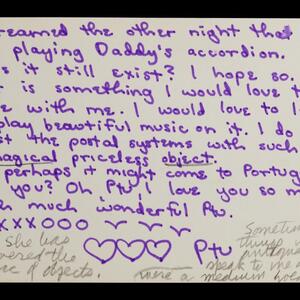 reamed the other night that
playing Daddy's accordion.
it still exist? I hope so.
is something I would love t
e with me. I would love to l
play beautiful music on it. I do
st the postal systems with such
magical priceless object.
perhaps it might come to Portug
you? Oh Ptu I love you so m
h much wonderful Ptu.
XXXOOO
Ptu
she has
ered the
of objects.
Sometim
things
speak to me
were a medium